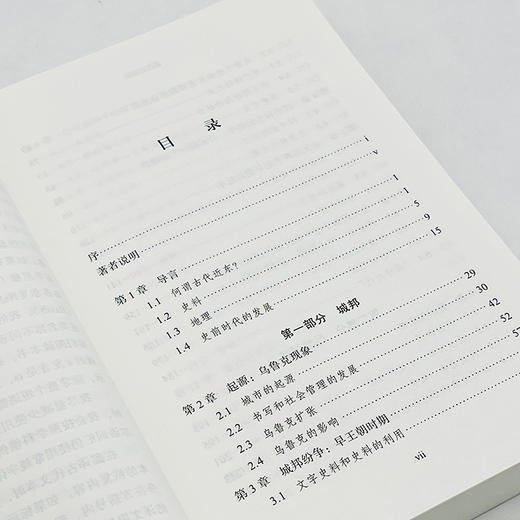 目 录
序 i
著者说明 v
第1章 导言 1
1.1 何谓古代近东? 1
1.2 史料 5
1.3 地理 9
1.4 史前时代的发展 15
第一部分 城邦
第2章 起源:乌鲁克现象 29
2.1 城市的起源 30
2.2 书写和社会管理的发展 42
2.3 乌鲁克扩张 52
2.4 乌鲁克的影响
第3章 城邦纷争:早王朝时期
3.1 文字史料和史料的利用
vii